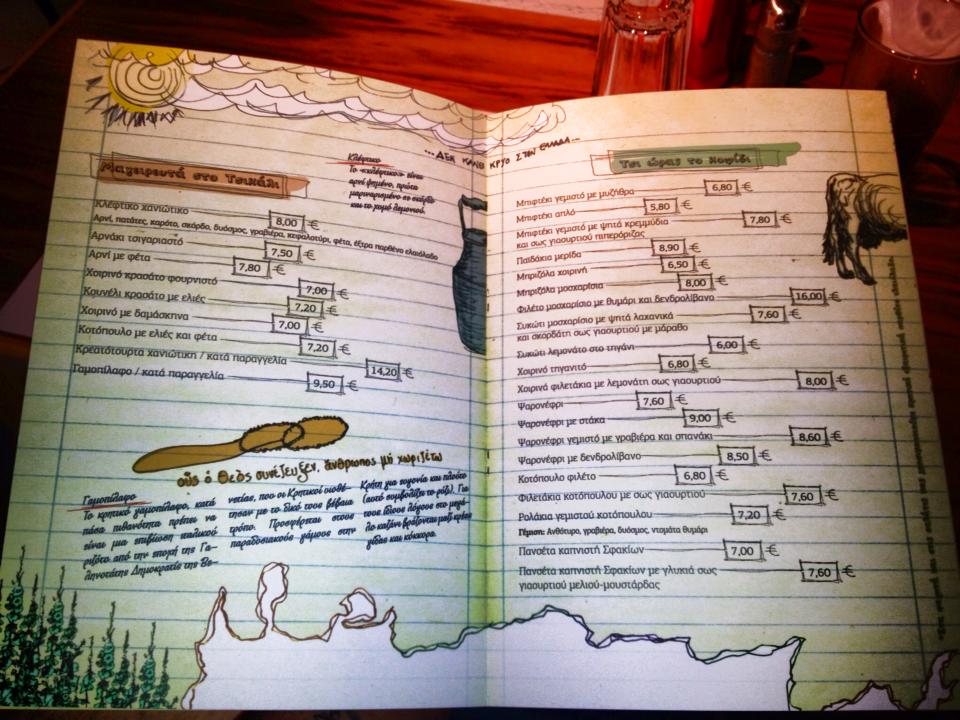 ...ΔΕΝ ΚΑΝΕΙ ΚΡΥΟ ΣΤΗΝ ΕΛΛΑΔΑ...
Μαγειρευτά στο Τσικάλι
Κλέφτικο
Το «κλέφτικο» είναι
αρνί ψημένο, πρώτα
μαριναρισμένο σε σκόρδο
και το χυμό λεμονιού.
Κλέφτικο χανιώτικο 8,00 €
Αρνί, πατάτες, καρότο, σκόρδο, δυόσμος, γραβιέρα, κεφαλοτύρι, φέτα, έξτρα παρθένο ελαιόλαδο
Αρνάκι τσιγαριαστό 7,50 €
Αρνί με φέτα 7,80 €
Χοιρινό κρασάτο φουρνιστό 7,00 €
Κουνέλι κρασάτο με ελιές 7,20 €
Χοιρινό με δαμάσκηνα 7,00 €
Κοτόπουλο με ελιές και φέτα 7,20 €
Κρεατότουρτα χανιώτικη / κατά παραγγελία 14,20 €
Γαμοπίλαφο / κατά παραγγελία 9,50 €
οὓς ὁ Θεὸς συνέζευξεν, ἄνθρωπος μὴ χωριζέτω
Γαμοπίλαφο
Το κρητικό γαμοπίλαφο, κατά
πάσα πιθανότητα πρέπει να
είναι μια επιβίωση ιταλικού
ριζότο από την εποχή της Γα-
ληνοτάτης Δημοκρατίας της Βε-
νετίας, που οι Κρητικοί υιοθέ-
τησαν με το δικό τους βέβαια
τρόπο. Προσφέρεται στους
παραδοσιακούς γάμους στην
Κρήτη για ευγονία και πλούτο
(αυτό συμβολίζει το ρύζι). Για
τους ίδιους λόγους στο μεγά-
λο καζάνι βράζονται μαζί κρέας
γίδας και κόκορα.
Τσι ώρας το Κοψίδι
Μπιφτέκι γεμιστό με μυζήθρα 6,80 €
Μπιφτέκι απλό 5,80 €
Μπιφτέκι γεμιστό με ψητά κρεμμύδια 7,80 €
και σως γιαουρτιού πιπερόριζας
Παιδάκια μερίδα 8,90 €
Μπριζόλα χοιρινή 6,50 €
Μπριζόλα μοσχαρίσια 8,00 €
Φιλέτο μοσχαρίσιο με θυμάρι και δενδρολίβανο 16,00 €
Συκώτι μοσχαρίσιο με ψητά λαχανικά 7,60 €
και σκορδάτη σως γιαουρτιού με μάραθο
Συκώτι λεμονάτο στο τηγάνι 6,00 €
Χοιρινό τηγανιτό 6,80 €
Χοιρινά φιλετάκια με λεμονάτη σως γιαουρτιού 8,00 €
Ψαρονέφρι 7,60 €
Ψαρονέφρι με στάκα 9,00 €
Ψαρονέφρι γεμιστό με γραβιέρα και σπανάκι 8,60 €
Ψαρονέφρι με δενδρολίβανο 8,50 €
Κοτόπουλο φιλέτο 6,80 €
Φιλετάκια κοτόπουλου με σως γιαουρτιού 7,60 €
Ρολάκια γεμιστού κοτόπουλου 7,20 €
Γέμιση: Ανθότυρο, γραβιέρα, δυόσμος, ντομάτα θυμάρι
Πανσέτα καπνιστή Σφακίων 7,00 €
Πανσέτα καπνιστή Σφακίων με γλυκιά σως 7,60 €
γιαουρτιού μελιού-μουστάρδας